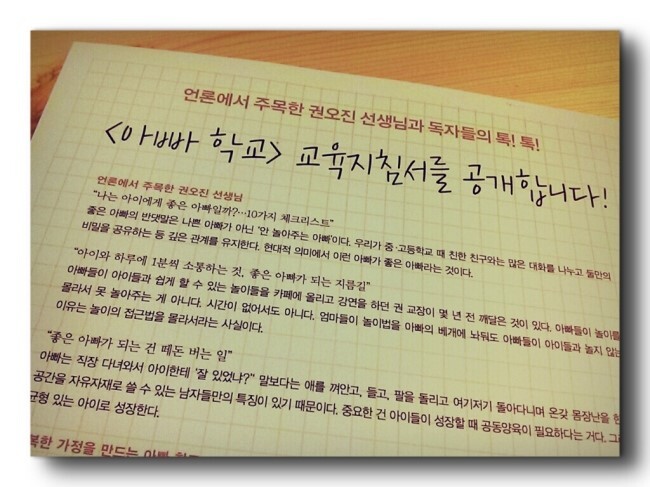 언론에서 주목한 권오진 선생님과 독자들의 톡! 톡!
<아빠 학교> 교육지침서를 공개합니다!
언론에서 주목한 권오진 선생님
"나는 아이에게 좋은 아빠일까?…10가지 체크리스트"
좋은 아빠의 반댓말은 나쁜 아빠가 아닌 '안 놀아주는 아빠'이다. 우리가 중·고등학교 때 친한 친구와는 많은 대화를 나누고 둘만의
비밀을 공유하는 등 깊은 관계를 유지한다. 현대적 의미에서 이런 아빠가 좋은 아빠라는 것이다.
"아이와 하루에 1분씩 소통하는 것, 좋은 아빠가 되는 지름길"
아빠들이 아이들과 쉽게 할 수 있는 놀이들을 카페에 올리고 강연을 하던 권 교장이 몇 년 전 깨달은 것이 있다. 아빠들이 놀이를
몰라서 못 놀아주는 게 아니다. 시간이 없어서도 아니다. 엄마들이 놀이법을 아빠의 베개에 놔둬도 아빠들이 아이들과 놀지 않는
이유는 놀이의 접근법을 몰라서라는 사실이다.
"좋은 아빠가 되는 건 떼돈 버는 일"
아빠는 직장 다녀와서 아이한테 '잘 있었냐?" 말보다는 애를 껴안고, 들고, 팔을 돌리고 여기저기 돌아다니며 온갖 몸장난을 한
공간을 자유자재로 쓸 수 있는 남자들만의 특징이 있기 때문이다. 중요한 건 아이들이 성장할 때 공동양육이 필요하다는 거다.
균형 있는 아이로 성장한다.
가정을 만드는 아빠